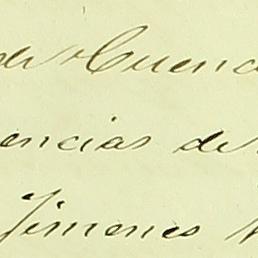 de Cuenc
encias de
Jimenes